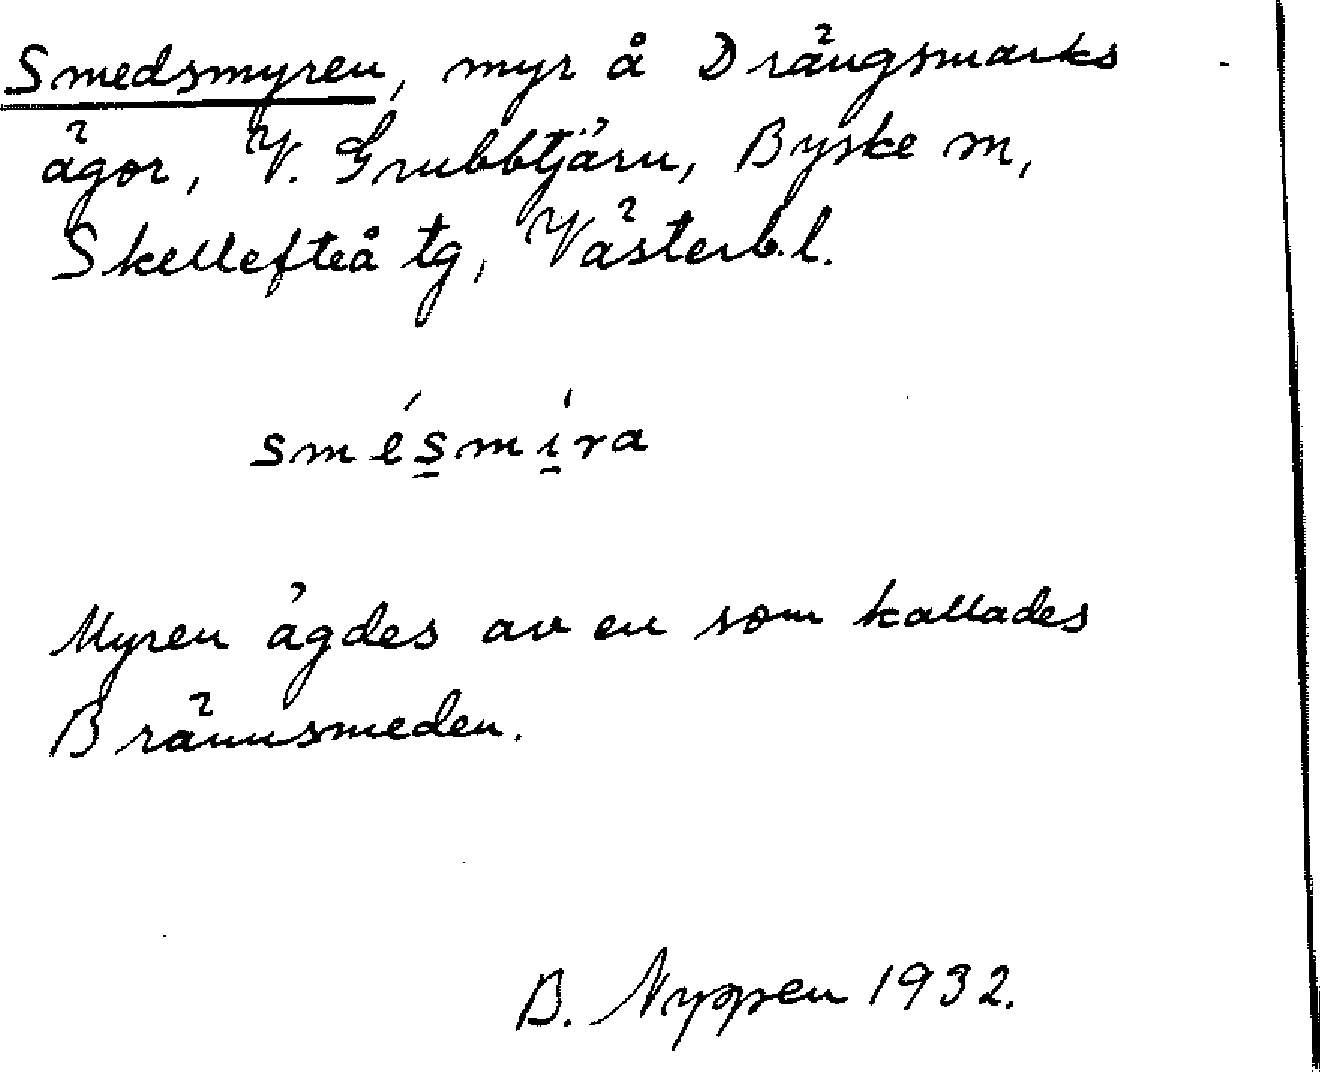 Smedsmyren, myr å Drängsmarks
ägor, V. Grubbtjärn, Byske m,
Skellefteå tg, Västerb.l.
smésmíra
Myren ägdes av en som kallades
Brännsmeden.
B. Nyppen 1932.